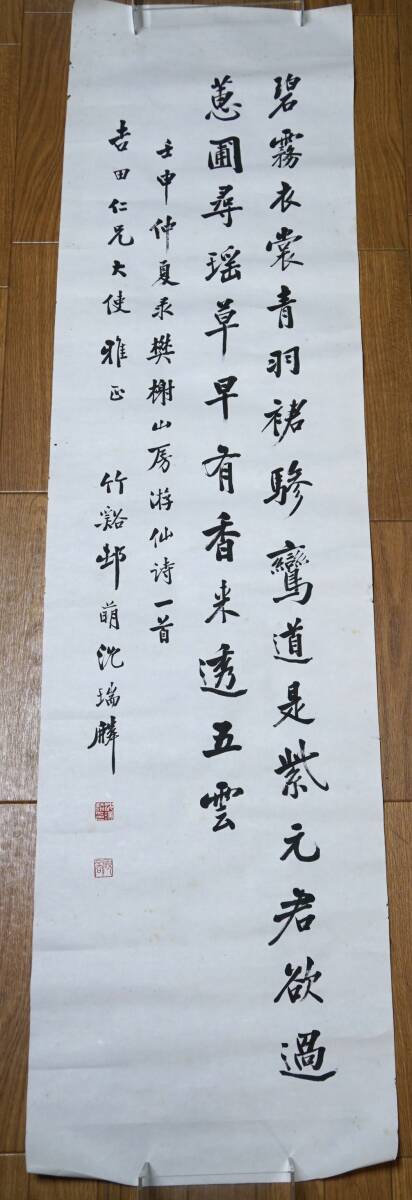 碧霧衣裳青羽裙驂鸞道是紫元君欲過
蔥圃尋瑤草早有香来透五雲
壬申仲夏录樊榭山房游仙诗一首
吉田仁兄大使雅正
竹谿邨萌沈瑞麟